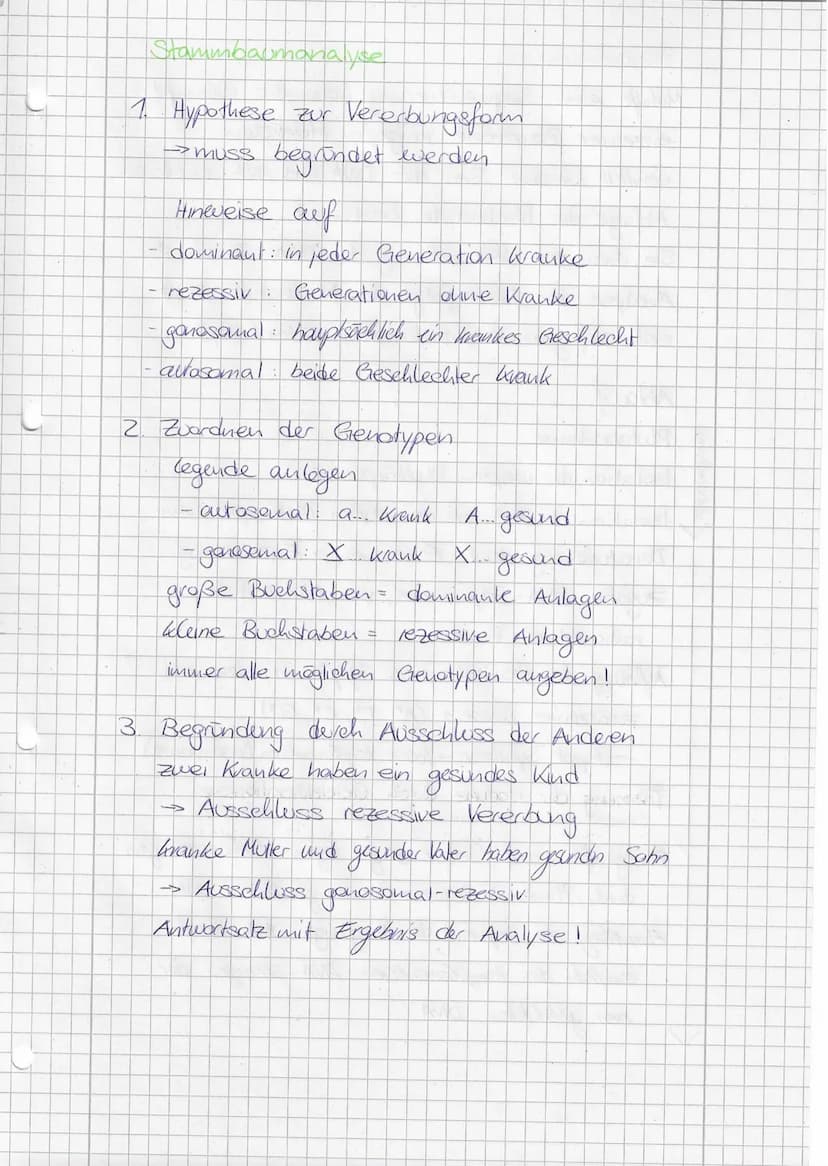 Stammbaumanalyse
1. Hypothese zur Vererbungsform
→ muss begründet werden
Hinweise auf
- dominant: in jeder Generation Kranke
- rezessiv: Generationen ohne Kranke
- gonosomal: hauptsächlich ein krankes Geschlecht
- autosomal: beide Geschlechter krank
2. Zuordnen der Genotypen
Legende anlegen
- autosomal: a... krank A... gesund
- gonosomal: X... krank X... gesund
große Buchstaben = dominante Anlagen
kleine Buchstaben = rezessive Anlagen
immer alle möglichen Genotypen angeben!
3. Begründung durch Ausschluss der Anderen
zwei Kranke haben ein gesundes Kind
→ Ausschluss rezessive Vererbung
kranke Mutter und gesunder Vater haben gesundn Sohn
→ Ausschluss gonosomal-rezessiv
Antwortsatz mit Ergebnis der Analyse!